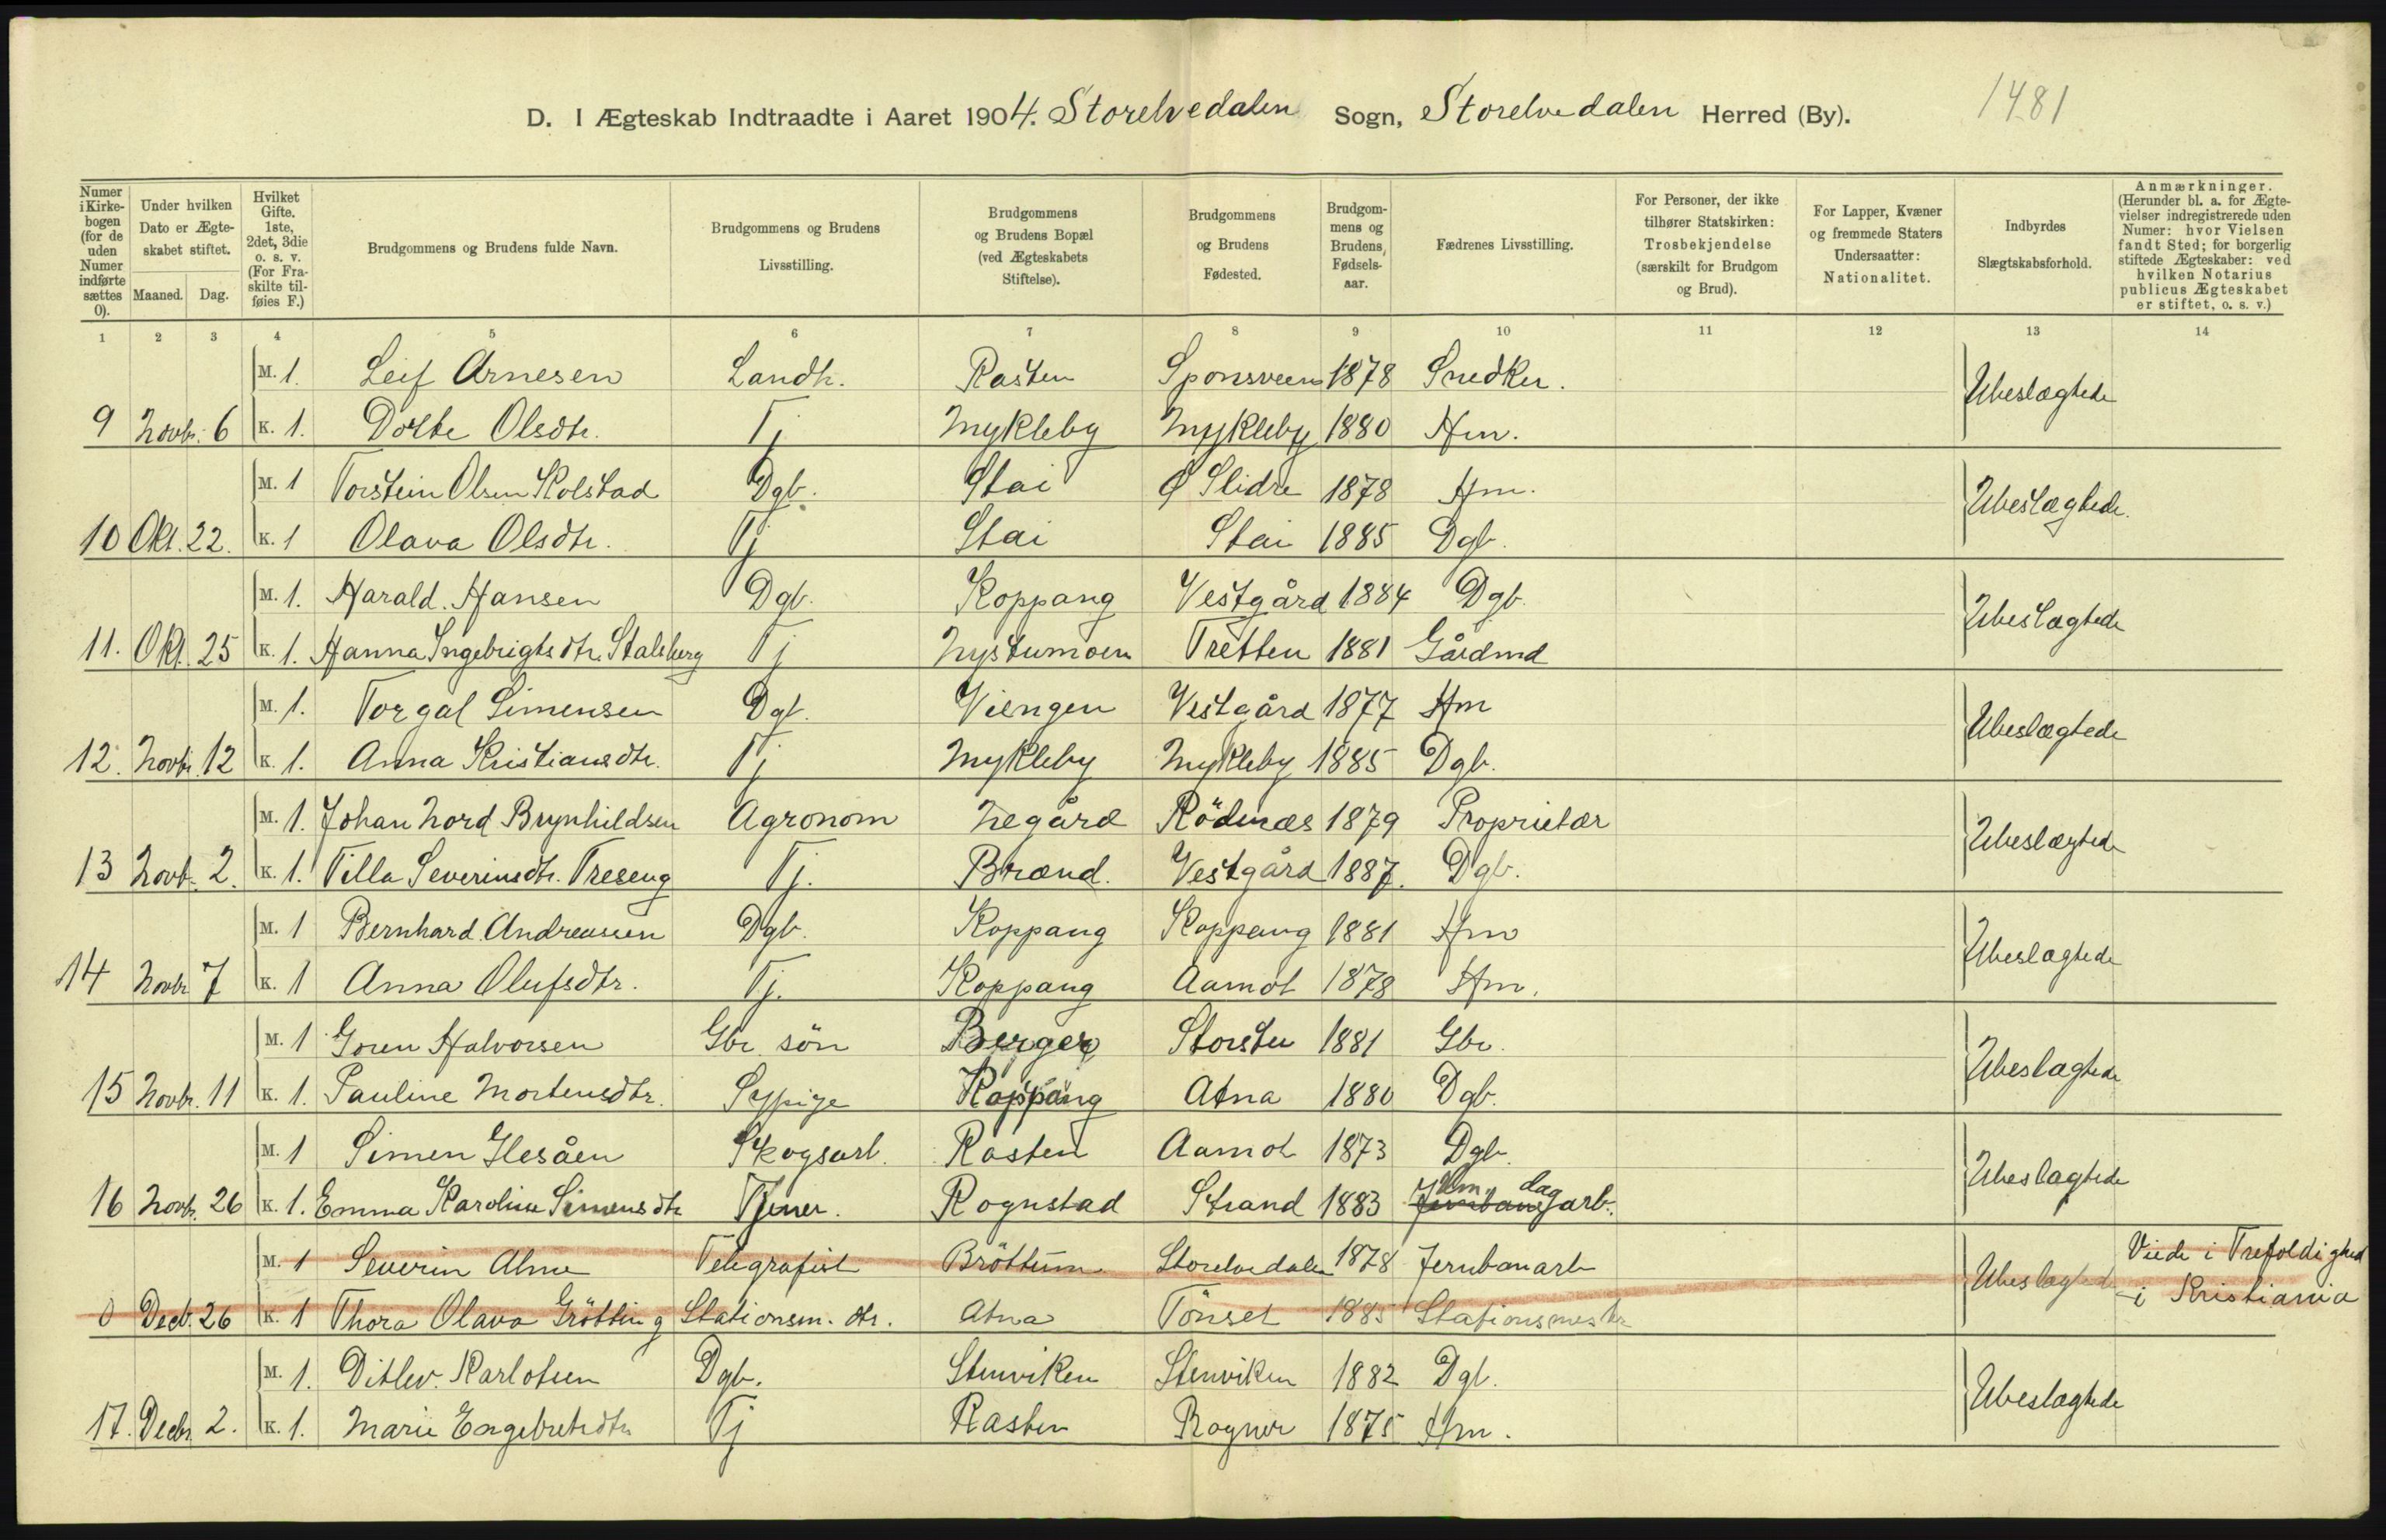 D. I Ægteskab Indtraadte i Aaret 1904. Storelvedalen Sogn, Storelvedalen Herred (By). 1481
Numer i Kirkebogen (for de uden Numer indførte sættes 0).
Under hvilken Dato er Ægteskabet stiftet.
Maaned. Dag.
Hvilket Gifte. 1ste, 2det, 3die o. s. v. (For Fraskilte tilføies F.)
Brudgommens og Brudens fulde Navn.
Brudgommens og Brudens Livsstilling.
Brudgommens og Brudens Bopæl (ved Ægteskabets Stiftelse).
Brudgommens og Brudens Fødested.
Brudgommens og Brudens Fødselsaar.
Fædrenes Livsstilling.
For Personer, der ikke tilhører Statskirken: Trosbekjendelse (særskilt for Brudgom og Brud).
For Lapper, Kvæner og fremmede Staters Undersaatter: Nationalitet.
Indbyrdes Slægtskabsforhold.
Anmærkninger. (Herunder bl. a. for Ægtevielser indregistrerede uden Numer: hvor Vielsen fandt Sted; for borgerlig stiftede Ægteskaber: ved hvilken Notarius publicus Ægteskabet er stiftet, o. s. v.)
1 2 3 4 5 6 7 8 9 10 11 12 13 14
M. 1. Leif Arnesen Landh. Rasten Sponsveen 1878 Snedker. Ubeslægtede
9 Novbr. 6 K. 1. Dorte Olsdtr. Tj Mykleby Mykleby 1880 Hm.
M. 1 Torstein Olsen Kolstad Dgb. Stai Ø Slidre 1878 Hm. Ubeslægtede.
10 Okt. 22. K. 1 Olava Olsdtr. Tj Stai Stai 1885 Dgb.
M. 1. Harald Hansen Dgb. Koppang Vestgård 1884 Dgb. Ubeslægtede
11. Okt. 25 K. 1. Hanna Ingebrigtsdtr. Stalsberg Tj Nystumoen Tretten 1881 Gårdmd
M. 1. Torgal Simensen Dgb. Viengen Vestgård 1877 Hm Ubeslægtede
12. Novbr. 12 K. 1. Anna Kristiansdtr. Tj Mykleby Mykleby 1885 Dgb.
M. 1. Johan Nord Brynhildsen Agronom Negård Rödenæs 1879 Proprietær Ubeslægtede
13 Novb. 2. K. 1. Tilla Severinsdtr. Treseng Tj. Brænd. Vestgård 1887. Dgb.
M. 1 Bernhard Andreassen Dgb. Koppang Koppang 1881 Hm Ubeslægtede
14 Novbr 7 K. 1 Anna Olufsdtr. Tj. Koppang Aamot 1878 Hm.
M. 1 Goren Halvorsen Gbr. sön Berger Storstu 1881 Gbr. Ubeslægtede
15 Novbr. 11 K. 1. Pauline Mortensdtr. Sypige Koppang Atna 1880 Dgb.
M. 1 Simen Glesåen Skogsarb. Rasten Aamot 1873 Dgb. Ubeslægtede
Hm. dag
16 Novbr. 26 K. 1. Emma Karoline Simensdtr Tjener. Rognstad Strand 1883 Jernbanearb.
M. 1 Severin Alme Telegrafist Bröttum Storelvedalen 1878 Jernbanarb Ubeslægtede Viede i Trefoldighed
0 Decb. 26 K. 1 Thora Olava Grötting Stationsm. dtr. Atna Tönset 1885 Stationsmester i Kristiania
M. 1. Ditlev Karlotsen Dgb. Stenviken Stenviken 1882 Dgb. Ubeslægtede
17. Decbr. 2. K. 1. Marie Engebretsdtr Tj Rasten 1875 Hm.